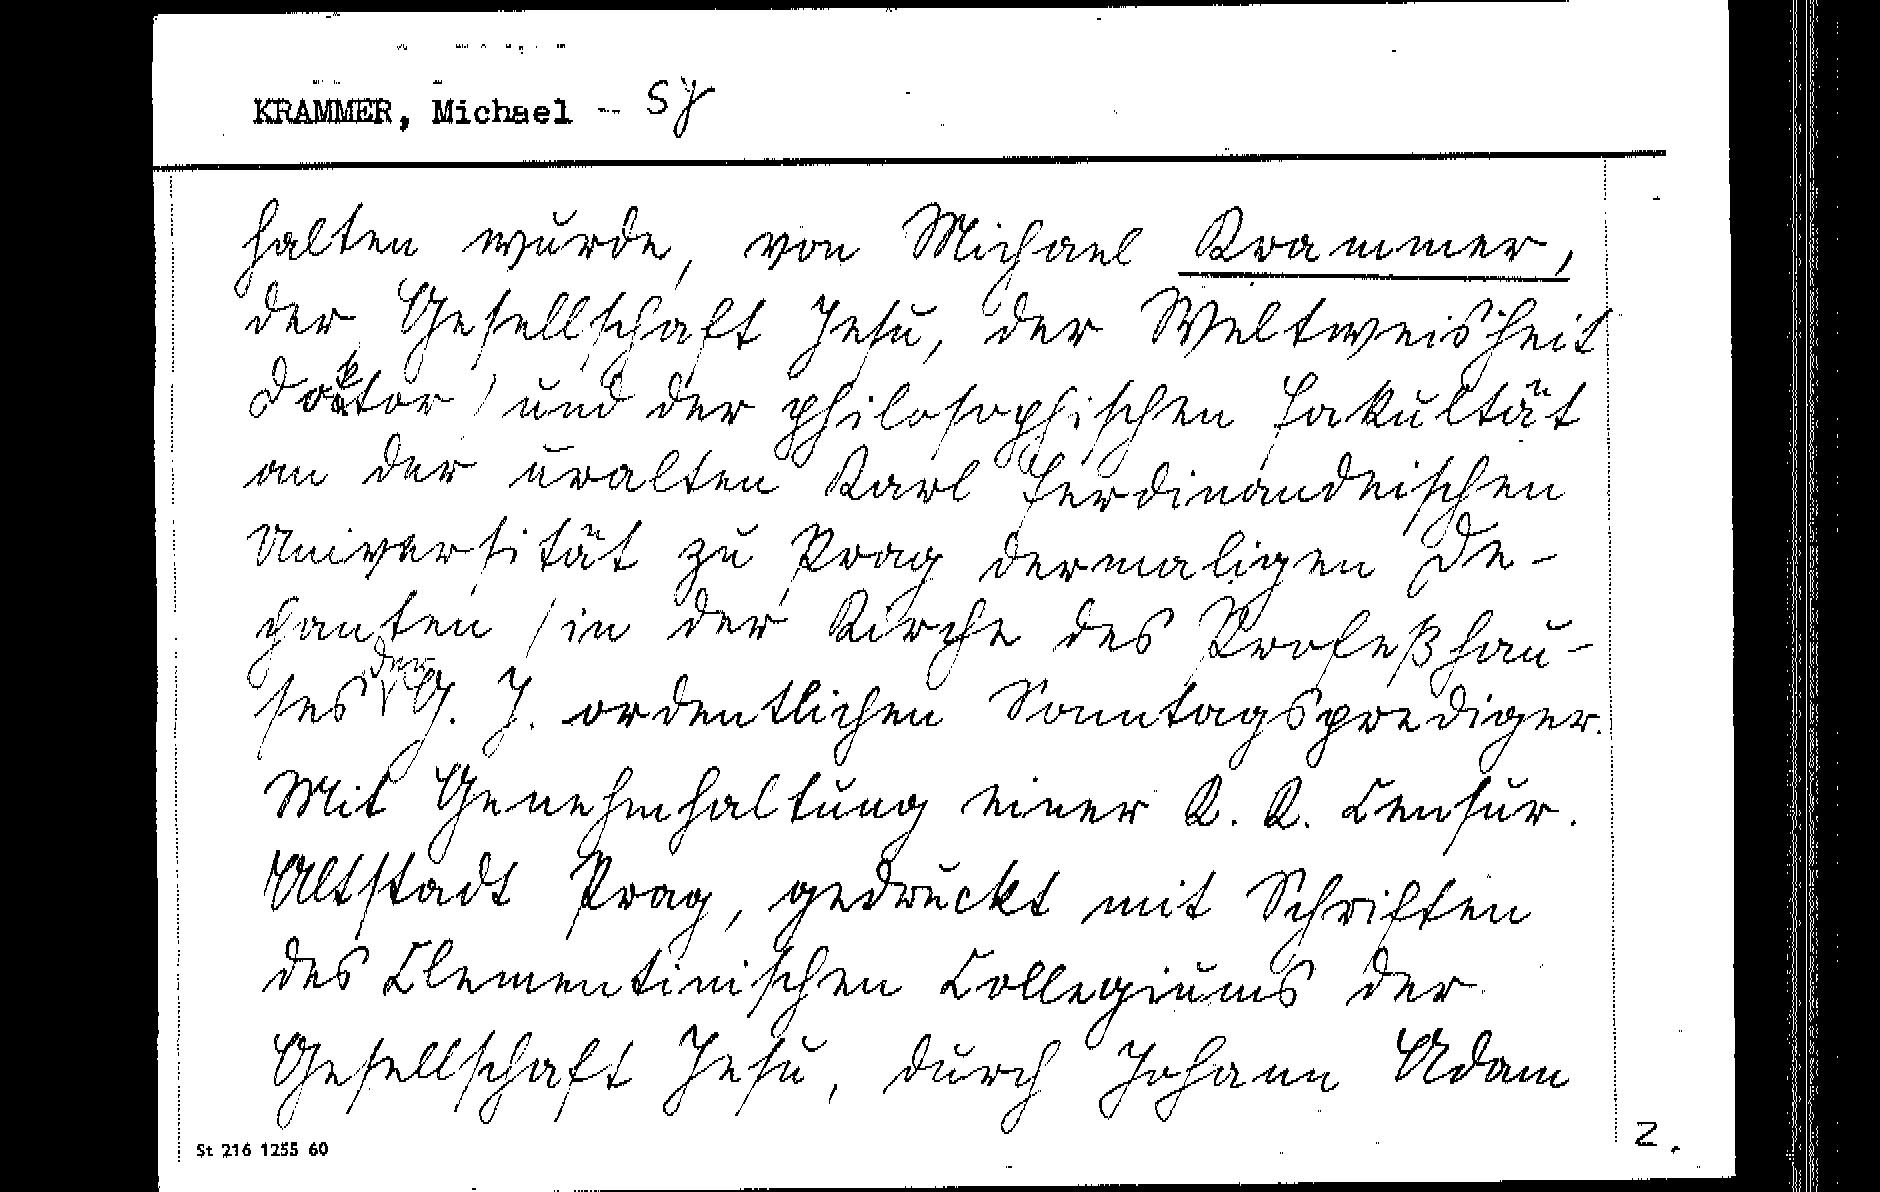 KRAMMER, Michael - SJ
halten wurde, von Michael Krammer,
der Gesellschaft Jesu, der Weltweisheit
Doktor / und der philosophischen Fakultät
an der uralten Karl Ferdinandeischen
Universität zu Prag dermaligen De-
chanten / in der Kirche des Profeßhau-
ses der G. J. ordentlichen Sonntagsprediger.
Mit Genehmhaltung einer K. K. Censur.
Altstadt Prag, gedruckt mit Schriften
des Clementinischen Collegiums der
Gesellschaft Jesu, durch Johann Adam
St 216 1255 60
2.